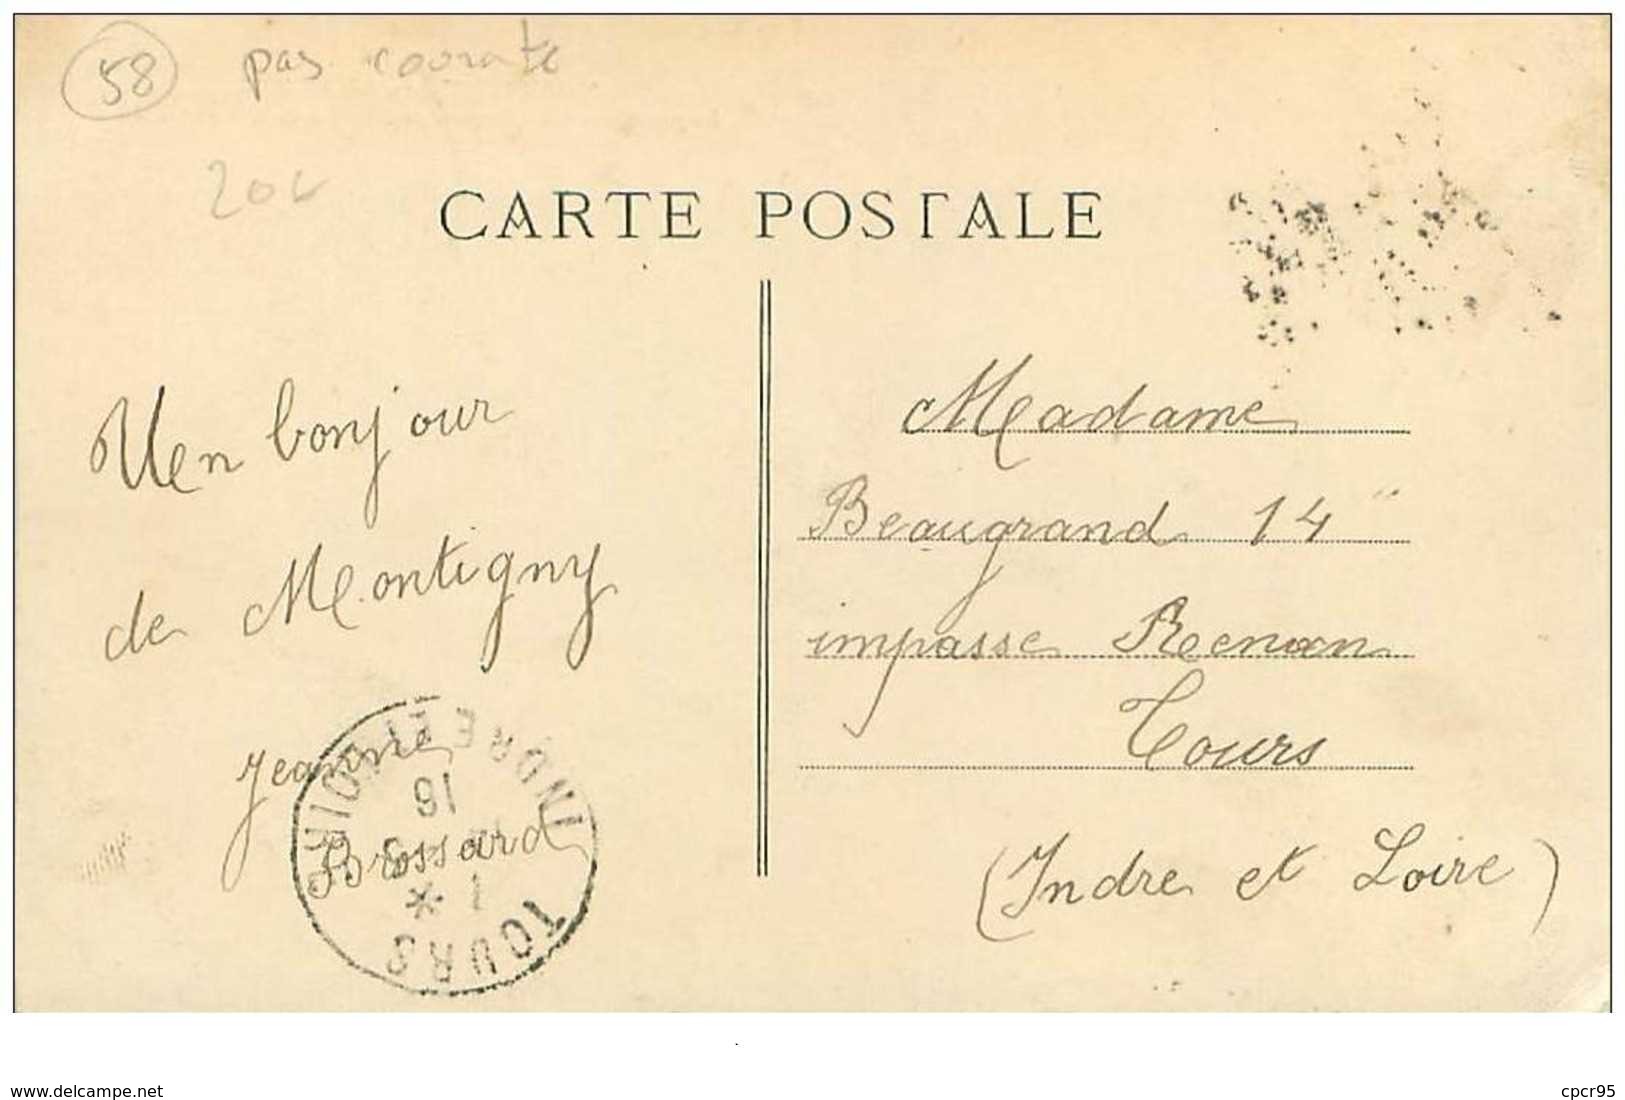 58 pas courante
20
CARTE POSTALE
Un bonjour
de Montigny
Jeanne
Brossard
Madame
Beaugrand 14
impasse Renan
Tours
(Indre et Loire)
TOURS
INDRE ET LOIRE
16
www.delcampe.net
cpcr95